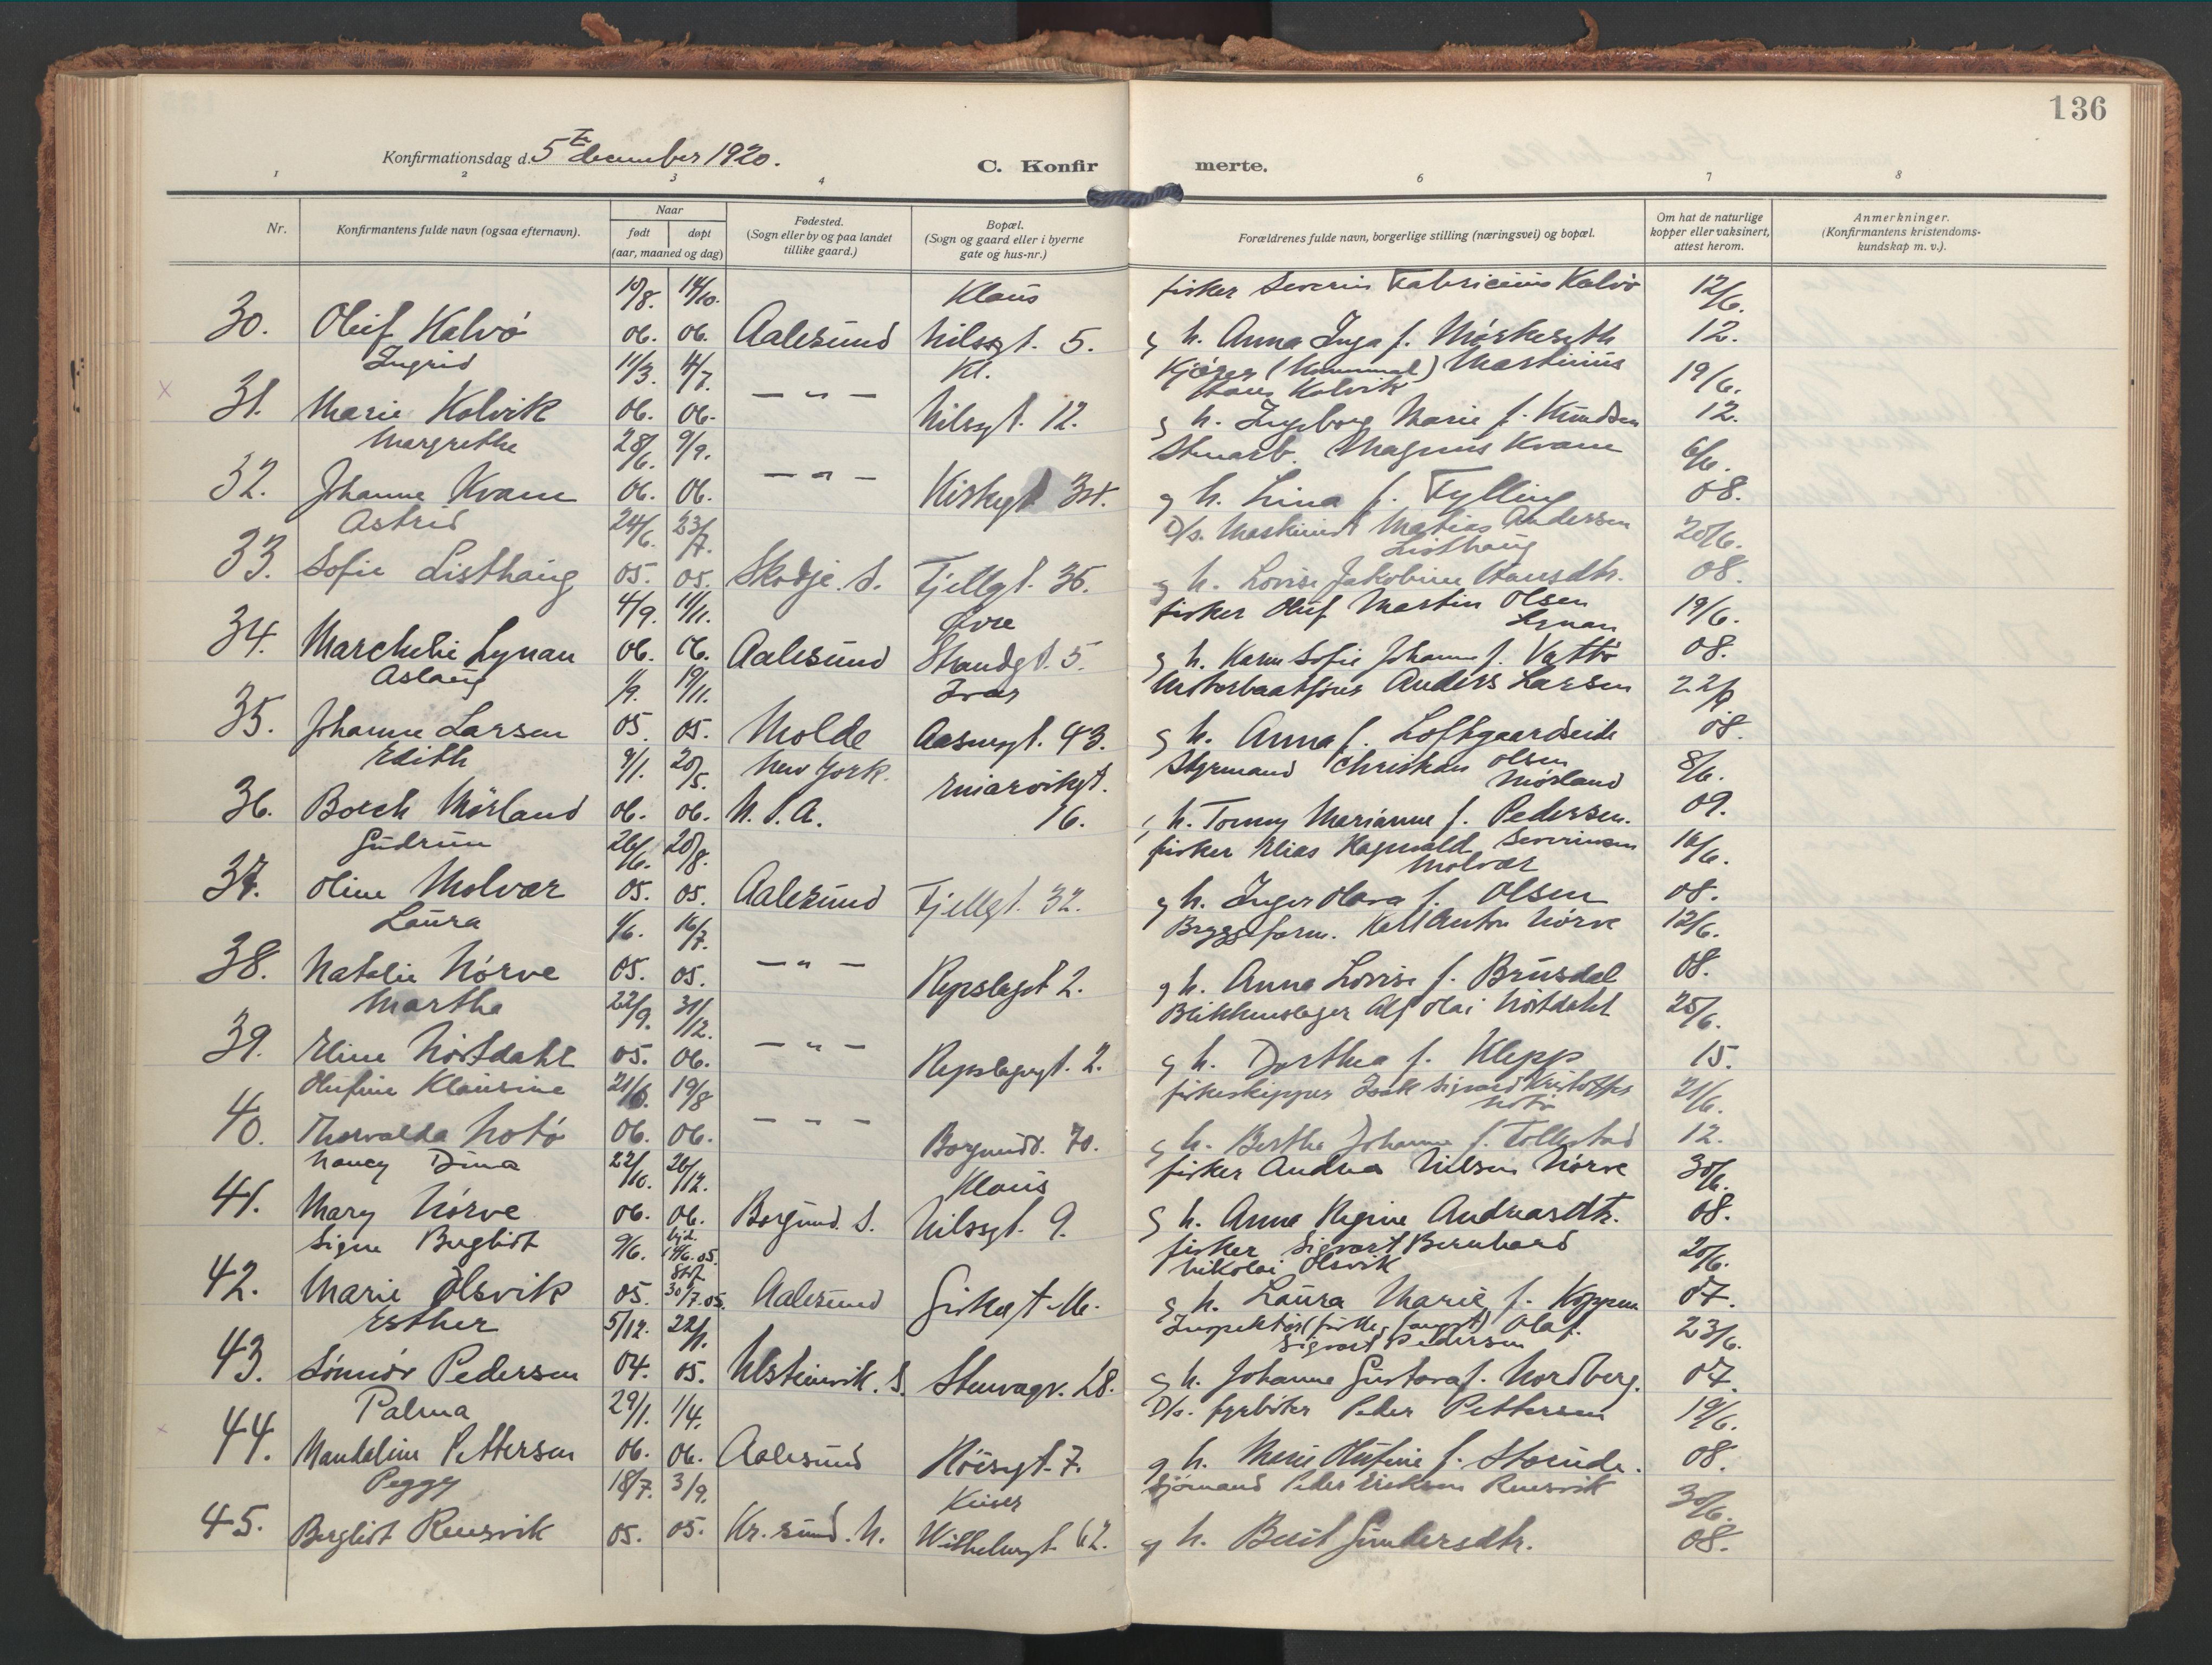 136
Konfirmationsdag d. 5te december 1920.
C. Konfirmerte.
1 2 3 4 6 7 8
Nr.
Konfirmantens fulde navn (ogsaa efternavn).
Naar
født døpt
(aar, maaned og dag)
Fødested.
(Sogn eller by og paa landet
tillike gaard.)
Bopæl.
(Sogn og gaard eller i byerne
gate og hus-nr.)
Forældrenes fulde navn, borgerlige stilling (næringsvei) og bopæl.
Om hat de naturlige
kopper eller vaksinert,
attest herom.
Anmerkninger.
(Konfirmantens kristendoms-
kundskap m. v.).
10/8. 14/10. Klaus fisker Severin Fabricius Kalvø 12/6.
30. Oluf Kalvø 06. 06. Aalesund Nilsgt. 5. g h. Anna Inga f. Mørkeseth 12.
Ingrid 11/3. 4/7. Kl. Kjører Martinius
Hans Kolvik 19/6.
31. Marie Kolvik 06. 06. — " — Nilsgt. 12. g h. Ingeborg Marie f. Knudsen 12.
Margrethe 28/6. 9/9. Stenarb. Magnus Kvam 6/6.
32. Johanne Kvam 06. 06. — " — Kirkegt. g h. Lina f. Fylling 08.
Astrid 24/6. 23/7. D/s. Maskinist Matias Andersen
Listhaug 20/6.
33. Sofie Listhaug 05. 05. Skodje. S. Fjellgt. 36. g h. Lovise Jakobine Hansdtr. 08.
4/9. 11/11. Øvre fisker Oluf Martin Olsen
Lynau 19/6.
34. Lynau 06. 06. Aalesund Strandgt. 5. g h. Karen Sofie Johanne f. Vattø 08.
Aslaug 1/9. 19/11. Ivar Motorbaatfører Anders Larsen 22/9
35. Johanne Larsen 05. 05. Molde Aasensgt. 43. g h. Anna f. Loftgaardseide 08.
Edith 9/1. 20/5. New York. Styrmand Christian Olsen
Mörland 8/6.
36. Borch Mörland 06. 06. U. S. A. 16. h. Tommy Marianne f. Pedersen. 09.
Gudrun 26/6. 20/8. fisker Elias Ragnvald Severinsen
Molvær 16/6.
37. Oline Molvær 05. 05. Aalesund Fjellgt. 32. g h. Inger Olava f. Olsen 08.
Laura 1/6. 16/7. Bryggeform. Karl Anton Nörve 12/6.
38. Natalie Nörve 05. 05. — " — Repslagergt 2. g h. Anna Lovise f. Brusdal 08.
Martha 22/9. 31/12. Blikkenslager Alf Olai Nöstdahl 25/6.
39. Eline Nöstdahl 05. 06. — " — Repslagergt. 2. g h. Dorthea f. Klepp 15.
Olufine Klausine 21/6. 19/8 fiskeskipper Isak Sigvard Kristoffer
Notö 21/6.
40. Thorvalda Notö 06. 06. — " — Borgundv. 70. g h. Berthe Johanne f. Tollestad 12.
Nancy Dina 22/10. 26/12. Klaus fisker Andreas Nilsen Nörve 30/6.
41. Mary Nörve 06. 06. Borgund. S. Nilsgt. 9. g h. Anne Regine Andreasdtr. 08.
Signe Bergliot 9/6. hjd. 14/6. 05. fisker Sigvart Bernhard
Nikolai Olsvik 20/6.
42. Marie Olsvik 05. 30/7. 05. Aalesund Giskegt g h. Laura Marie f. Koppen 07.
Esther 5/12. 22/1. Inspektør Olaf
Sigvart Pedersen 23/6.
43. Sönnöv Pedersen 04. 05. Ulsteinvik. S. Stenvagv. 28. g h. Johanne Gustava f. Nordberg. 07.
Palma 29/1. 1/4. D/s. fyrböter Peder Pettersen 19/6.
44. Mandeline Pettersen 06. 06. Aalesund Röisgt. 7. g h. Olufine f. 08.
Peggy 18/7. 3/9. Keiser Sjömand Peder Eriksen Reusvik 30/6.
45. Bergliot Reusvik 05. 05. Kr.sund. N. Wilhelmsgt. 62. g h. Berit Gundersdtr. 08.